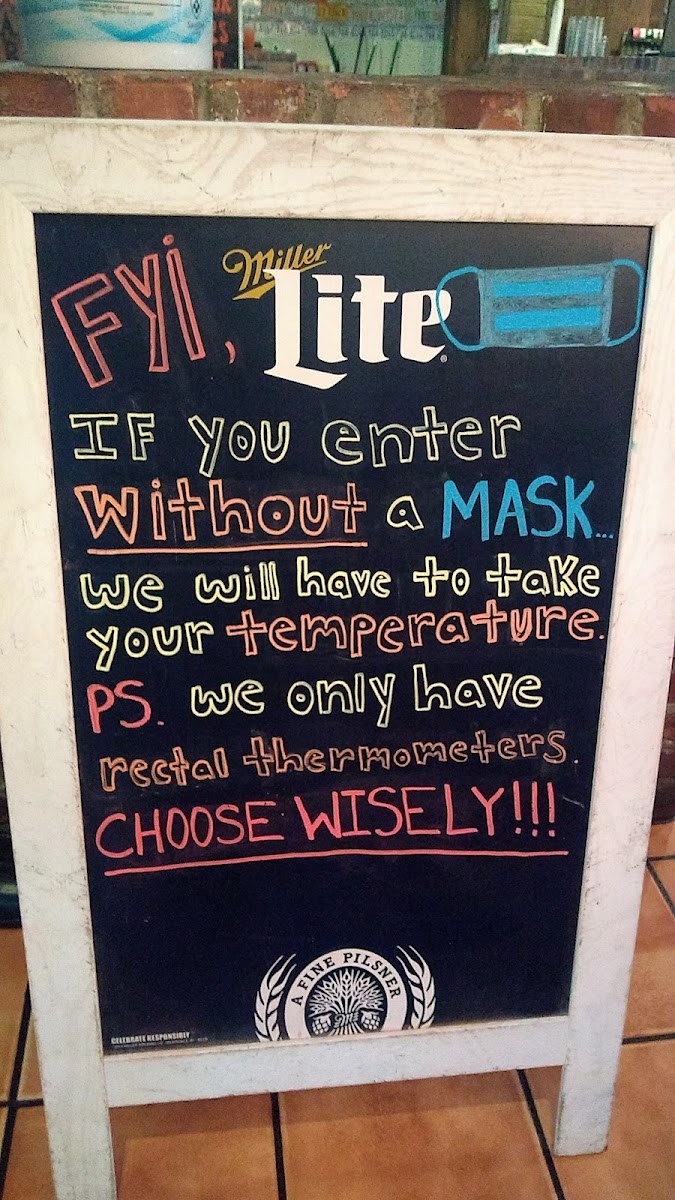 FYi, Miller Lite
IF you enter
without a MASK...
we will have to take
your temperature.
PS. we only have
rectal thermometers.
CHOOSE WISELY!!!
A FINE PILSNER
CELEBRATE RESPONSIBLY